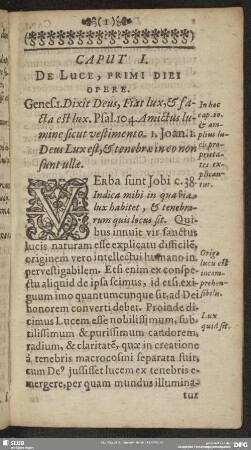 (1)
CAPUT I.
DE LUCE, PRIMI DIEI
OPERE.
Genes.1. Dixit Deus, Fiat lux, & fa-
cta est lux. Psal.104. Amictus lu-
mine sicut vestimento. 1. Joan. 1.
Deus Lux est, & tenebræ in eo non
sunt ullæ.
In hoc
cap. 20.
& am-
plius lu-
cis pro-
prieta-
tes ex-
plican-
tur.
VErba sunt Jobi c. 38.
Indica mihi in qua via
lux habitet, & tenebra-
rum quis locus sit. Qui-
bus innuit vir sanctus
lucis naturam esse explicatu difficilē,
originem vero intellectui humano im-
pervestigabilem. Etsi enim ex conspe-
ctu aliquid de ipsa scimus, id etsi exi-
guum imo quantumcunque sit, ad Dei
honorem converti debet. Proinde di-
cimus Lucem esse nobilissimum, sub-
tilissimum & purissimum candorem,
radium, & claritatē, quæ in creatione
á tenebris macrocosmi separata fuit,
cum De9 jussisset lucem ex tenebris e-
mergere, per quam mundus illumina-
tur
Origo
lucis est
incom-
prehen-
sibilis.
Lux
quid sit.
SLUB